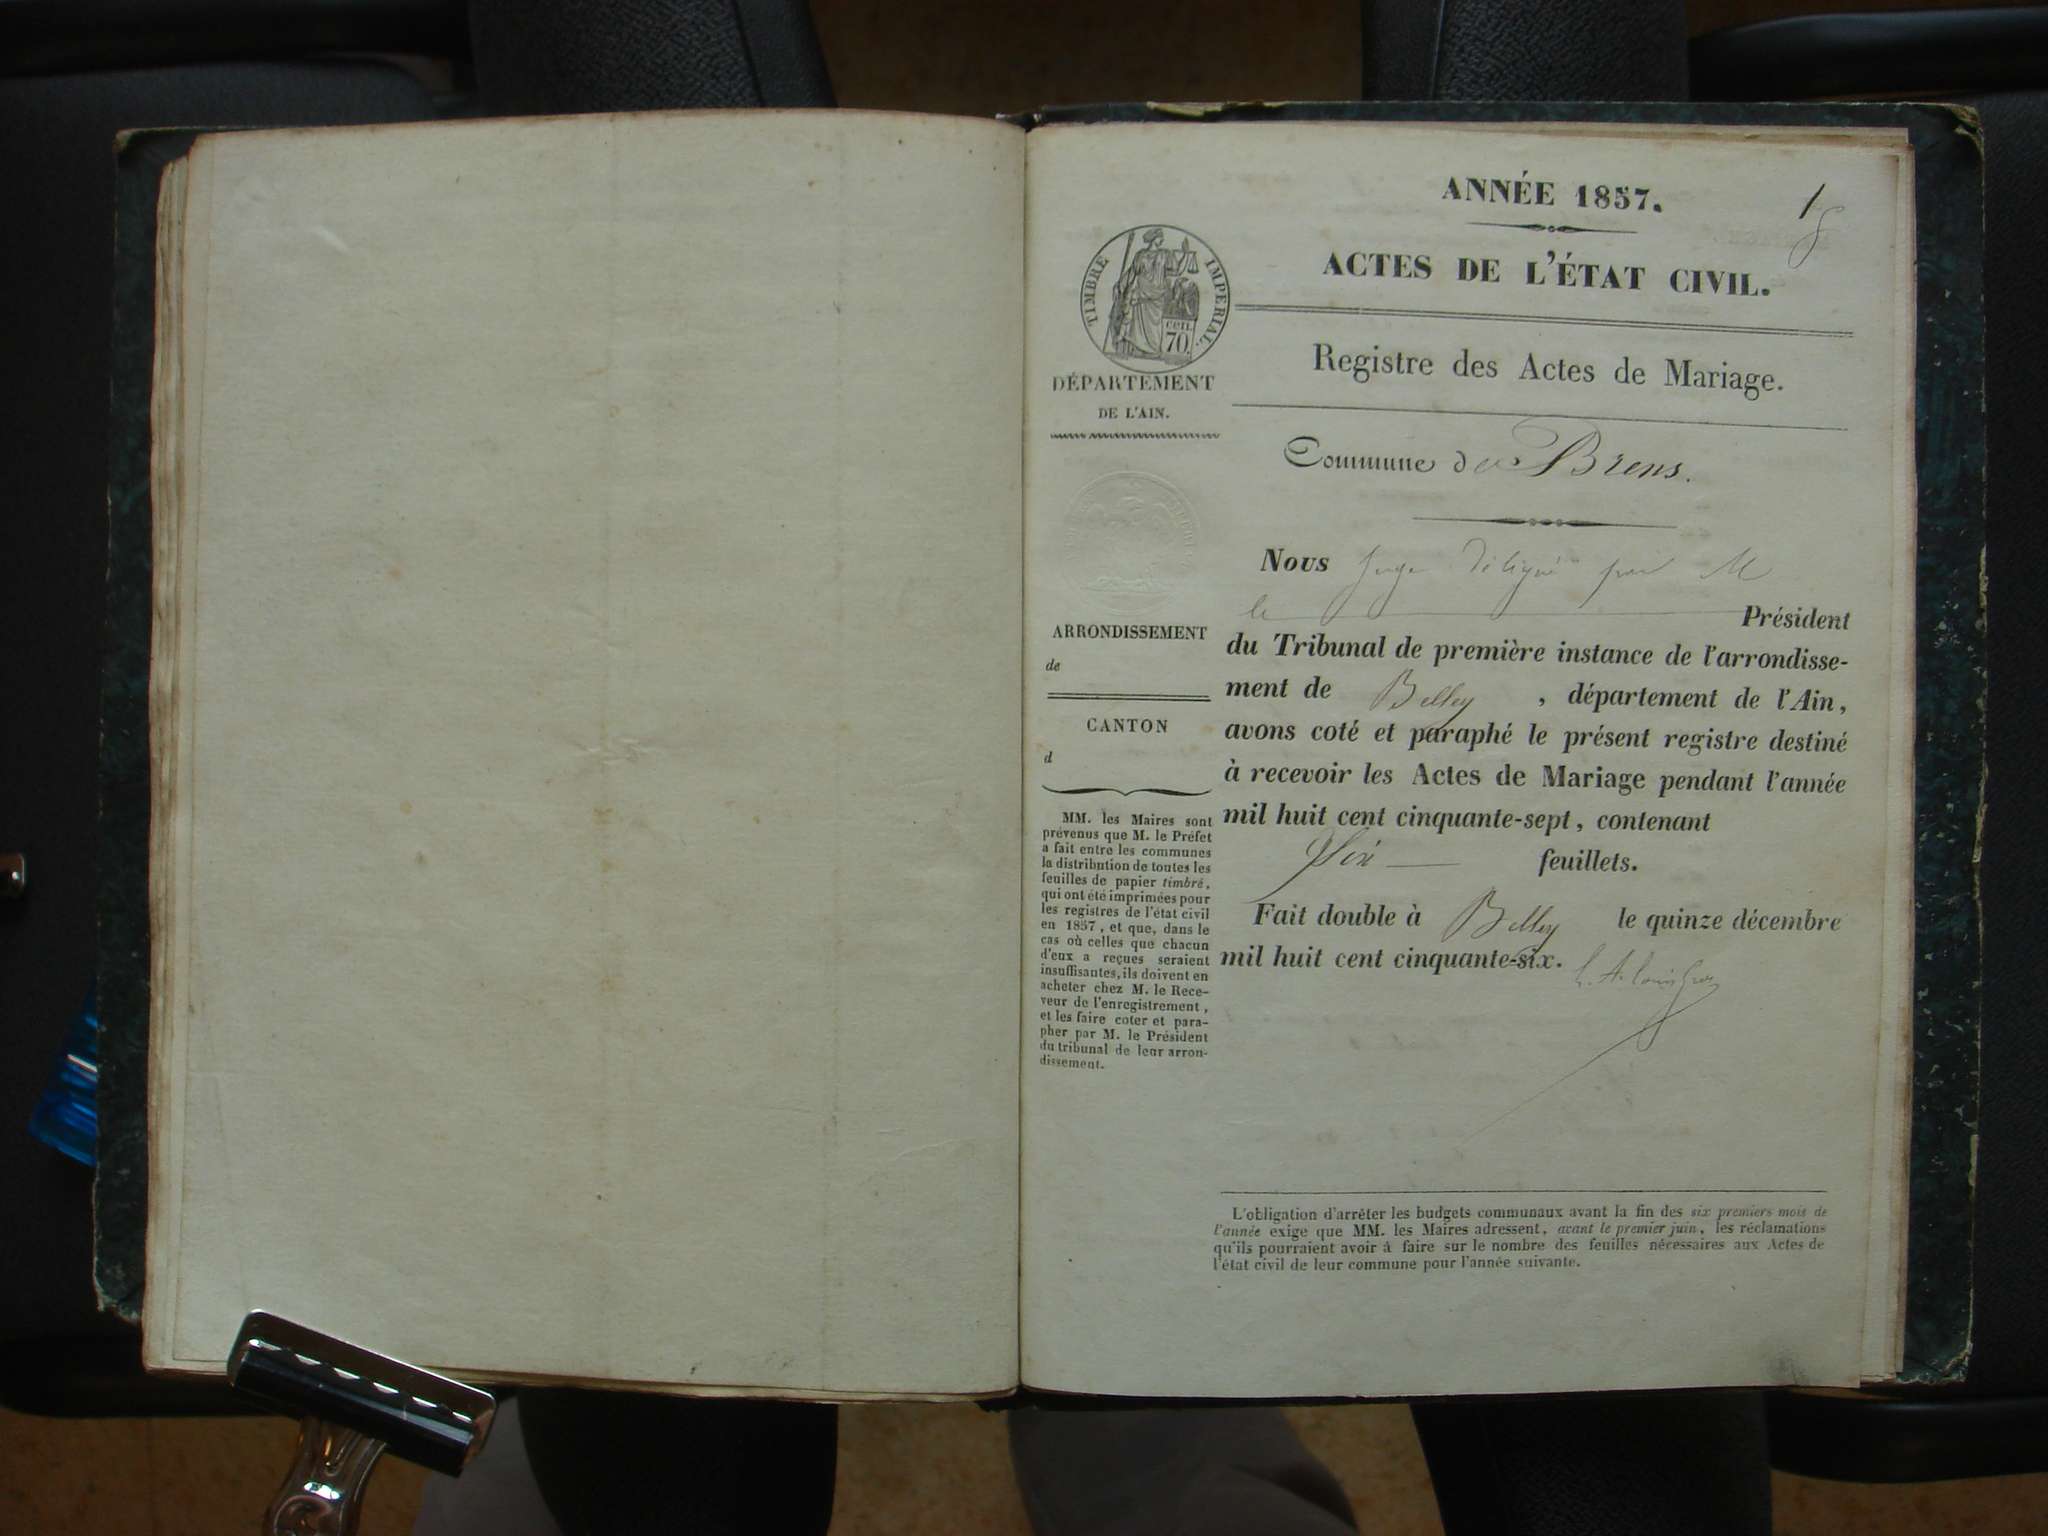 ANNÉE 1857.
1
ACTES DE L'ÉTAT CIVIL.
TIMBRE IMPERIAL.
cen.
70.
DÉPARTEMENT
DE L'AIN.
Registre des Actes de Mariage.
Commune de Brens.
Nous Juge délégué par M
le Président
ARRONDISSEMENT
de
CANTON
d
du Tribunal de première instance de l'arrondisse-
ment de Belley, département de l'Ain,
avons coté et paraphé le présent registre destiné
à recevoir les Actes de Mariage pendant l'année
mil huit cent cinquante-sept, contenant
Six feuillets.
Fait double à Belley le quinze décembre
mil huit cent cinquante-six.
MM. les Maires sont
prévenus que M. le Préfet
a fait entre les communes
la distribution de toutes les
feuilles de papier timbré,
qui ont été imprimées pour
les registres de l'état civil
en 1857, et que, dans le
cas où celles que chacun
d'eux a reçues seraient
insuffisantes, ils doivent en
acheter chez M. le Rece-
veur de l'enregistrement,
et les faire coter et para-
pher par M. le Président
du tribunal de leur arron-
dissement.
L'obligation d'arrêter les budgets communaux avant la fin des six premiers mois de
l'année exige que MM. les Maires adressent, avant le premier juin, les réclamations
qu'ils pourraient avoir à faire sur le nombre des feuilles nécessaires aux Actes de
l'état civil de leur commune pour l'année suivante.